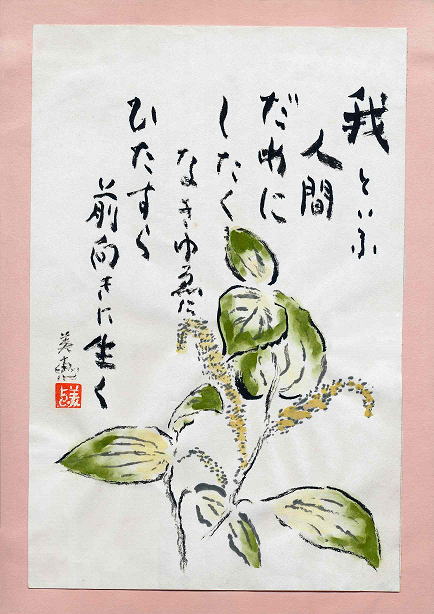 我といふ
人間
だめに
したく
なきゆゑに
ひたすら
前向きに生く